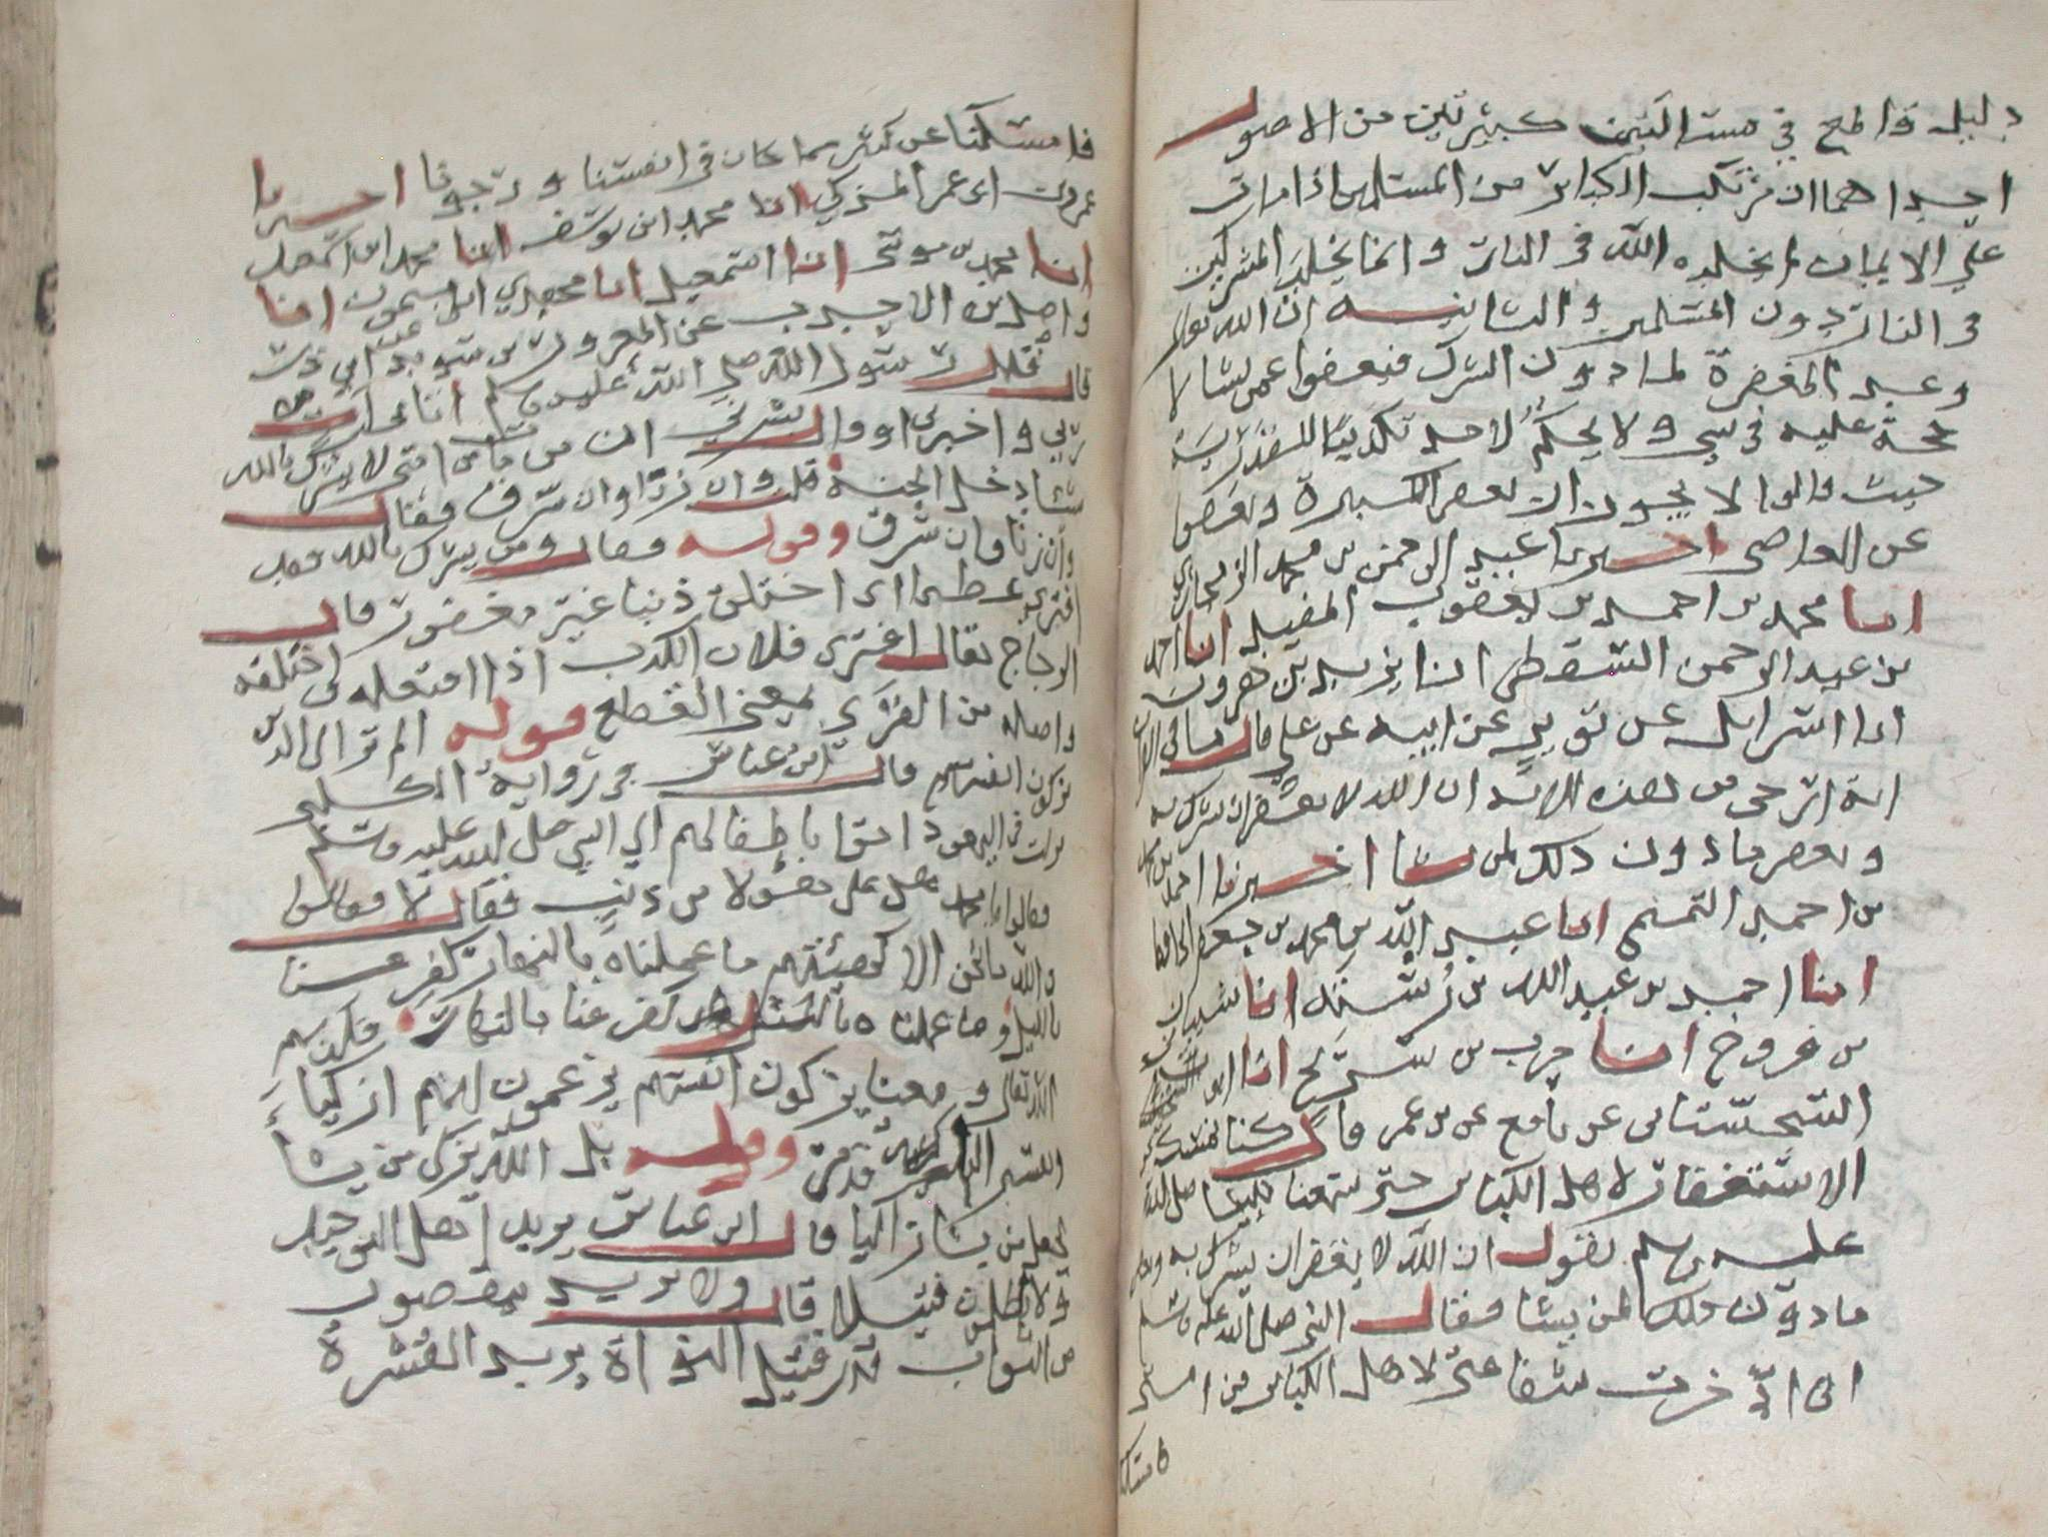 دليله قاطع في مسئلتين كبيرتين من الاصول
احداهما ان مرتكب الكبائر من المسلمين اذا مات
علي الايمان لم يخلده الله في النار وانما يخلد المشركين
في النار دون المسلمين والثانيه ان الله تعالى
وعد المغفرة لما دون الشرك فيعفوا عمن يشا لا
حجة عليه في شي ولا يحكم لاحد تكذيبا للقدريه
حيث قالوا لا يجوز ان يغفر الكبيرة ويعفوا
عن المعاصي اخبرنا عبد الرحمن بن محمد
انبا محمد بن احمد بن يعقوب المفيد انبا احمد
بن عبد الرحمن السقطي انا يزيد بن هرون
انا اسرايل عن ثوير عن ابيه عن علي قال ما في القران
اية ارجى من هذه الايه ان الله لا يغفر ان يشرك به
ويغفر ما دون ذلك لمن يشا اخبرنا احمد بن محمد
بن احمد التميمي انبا عبد الله بن محمد بن جعفر الحافظ
انبا احمد بن عبد الله بن رسته انا شيبان
بن فروخ انبا حرب بن سريج انا ايوب
السجستاني عن نافع عن بن عمر قال كنا نمسك عن
الاستغفار لاهل الكبائر حتى سمعنا نبينا صلى الله
عليه وسلم يقول ان الله لا يغفر ان يشرك به ويغفر
ما دون ذلك لمن يشا فقال النبي صلى الله عليه وسلم
اني ادخرت شفاعتي لاهل الكبائر من امتي
فامسكنا
فامسكنا عن كثير مما كان في انفسنا ورجونا اخبرنا
عمرو بن ابى عمر المزكي انا محمد ابن يوسف انبا محمد ابن اسمعيل
انا محمد بن موسى انا اسمعيل انا مهدي ابن ميمون انبا
واصل بن الاحدب عن المعرور بن سويد عن ابي ذر
قال قال رسول الله صلى الله عليه وسلم اتاني ات من
ربي واخبرني او قال بشرني ان من مات من امتي لا يشرك بالله
شيا دخل الجنة قلت وان زنا وان سرق فقال
وان زنا وان سرق وقوله تعالى ومن يشرك بالله فقد
افترى عظيما اى اختلق ذنبا غير مغفور قال
الزجاج يقال افترى فلان الكذب اذا افتعله اى اختلقه
واصله من الفرى بمعنى القطع قوله الم تر الى الذين
يزكون انفسهم قال ابن عباس في رواية الكلبي
نزلت في اليهود اتوا باطفالهم الي النبي صلى الله عليه وسلم
فقالوا يا محمد هل على هؤلا من ذنب فقال لا فقالوا
والله ما نحن الا كهيئتهم ما عملناه بالنهار كفر عنا
بالليل وما عملناه بالليل كفر عنا بالنهار فكذبهم
الله تعالى ومعنا يزكون انفسهم يزعمون انهم ازكياء
وتفسير التزكية قد مر وقوله بل الله يزكى من يشأ
يجعل من يشا زاكيا قال ابن عباس يريد اهل التوحيد
ولا يظلمون فتيلا قال ولا يريد ينقصون
من الثواب قدر فتيل النواة يريد القشرة